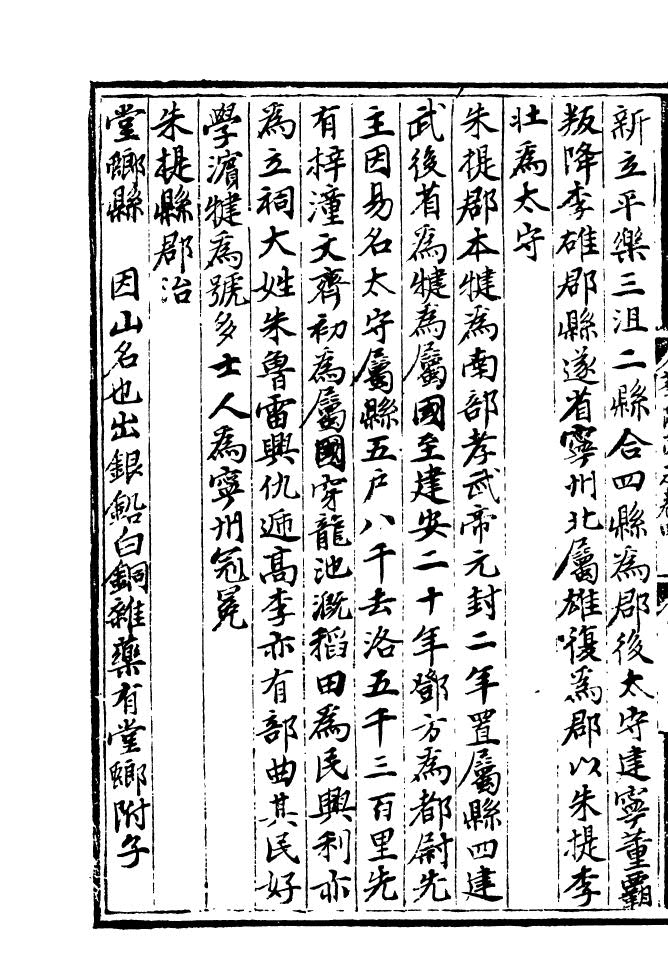 新立平樂三沮二縣合四縣為郡後太守建寧董霸
叛降李雄郡縣遂省寧州北屬雄復為郡以朱提李
壯為太守
朱提郡本犍為南部孝武帝元封二年置屬縣四建
武後省為犍為屬國至建安二十年鄧方為都尉先
主因易名太守屬縣五户八千去洛五千三百里先
有梓潼文齊初為屬國穿龍池溉稻田為民興利亦
為立祠大姓朱魯雷興仇遞高李亦有部曲其民好
學濱犍為號多士人為寧州冠冕
朱提縣郡治
堂螂縣 因山名也出銀鉛白銅雜藥有堂螂附子